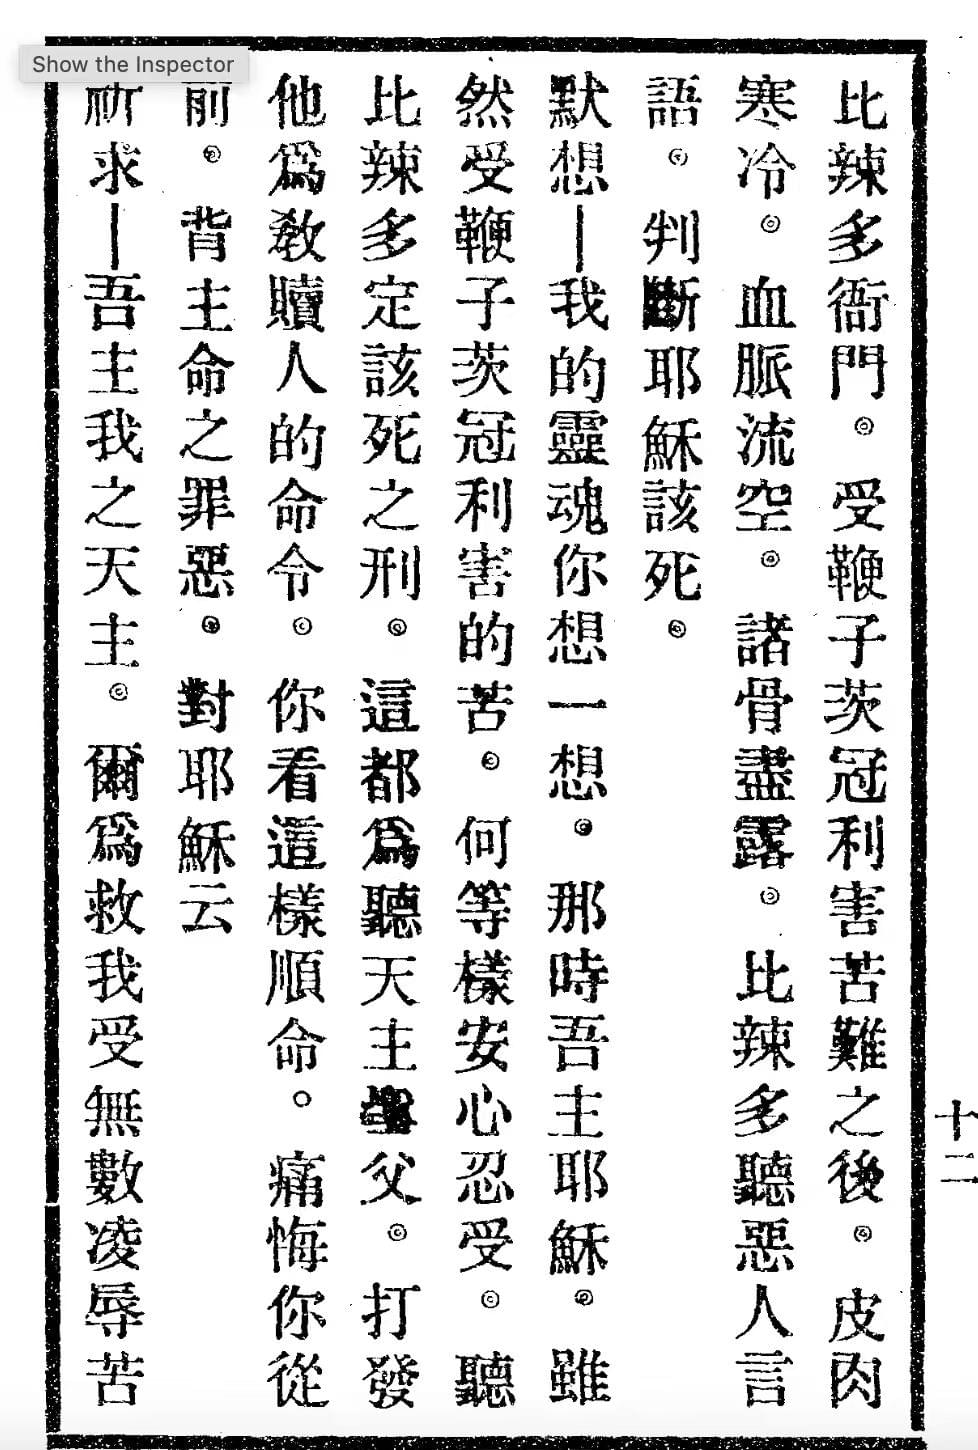 Show the Inspector
十二
比辣多衙門。受鞭子茨冠利害苦難之後。皮肉
寒冷。血脈流空。諸骨盡露。比辣多聽惡人言
語。判斷耶穌該死。
默想—我的靈魂你想一想。那時吾主耶穌。雖
然受鞭子茨冠利害的苦。何等樣安心忍受。聽
比辣多定該死之刑。這都爲聽天主聖父。打發
他爲救贖人的命令。你看這樣順命。痛悔你從
前。背主命之罪惡。對耶穌云
祈求—吾主我之天主。爾爲救我受無數凌辱苦